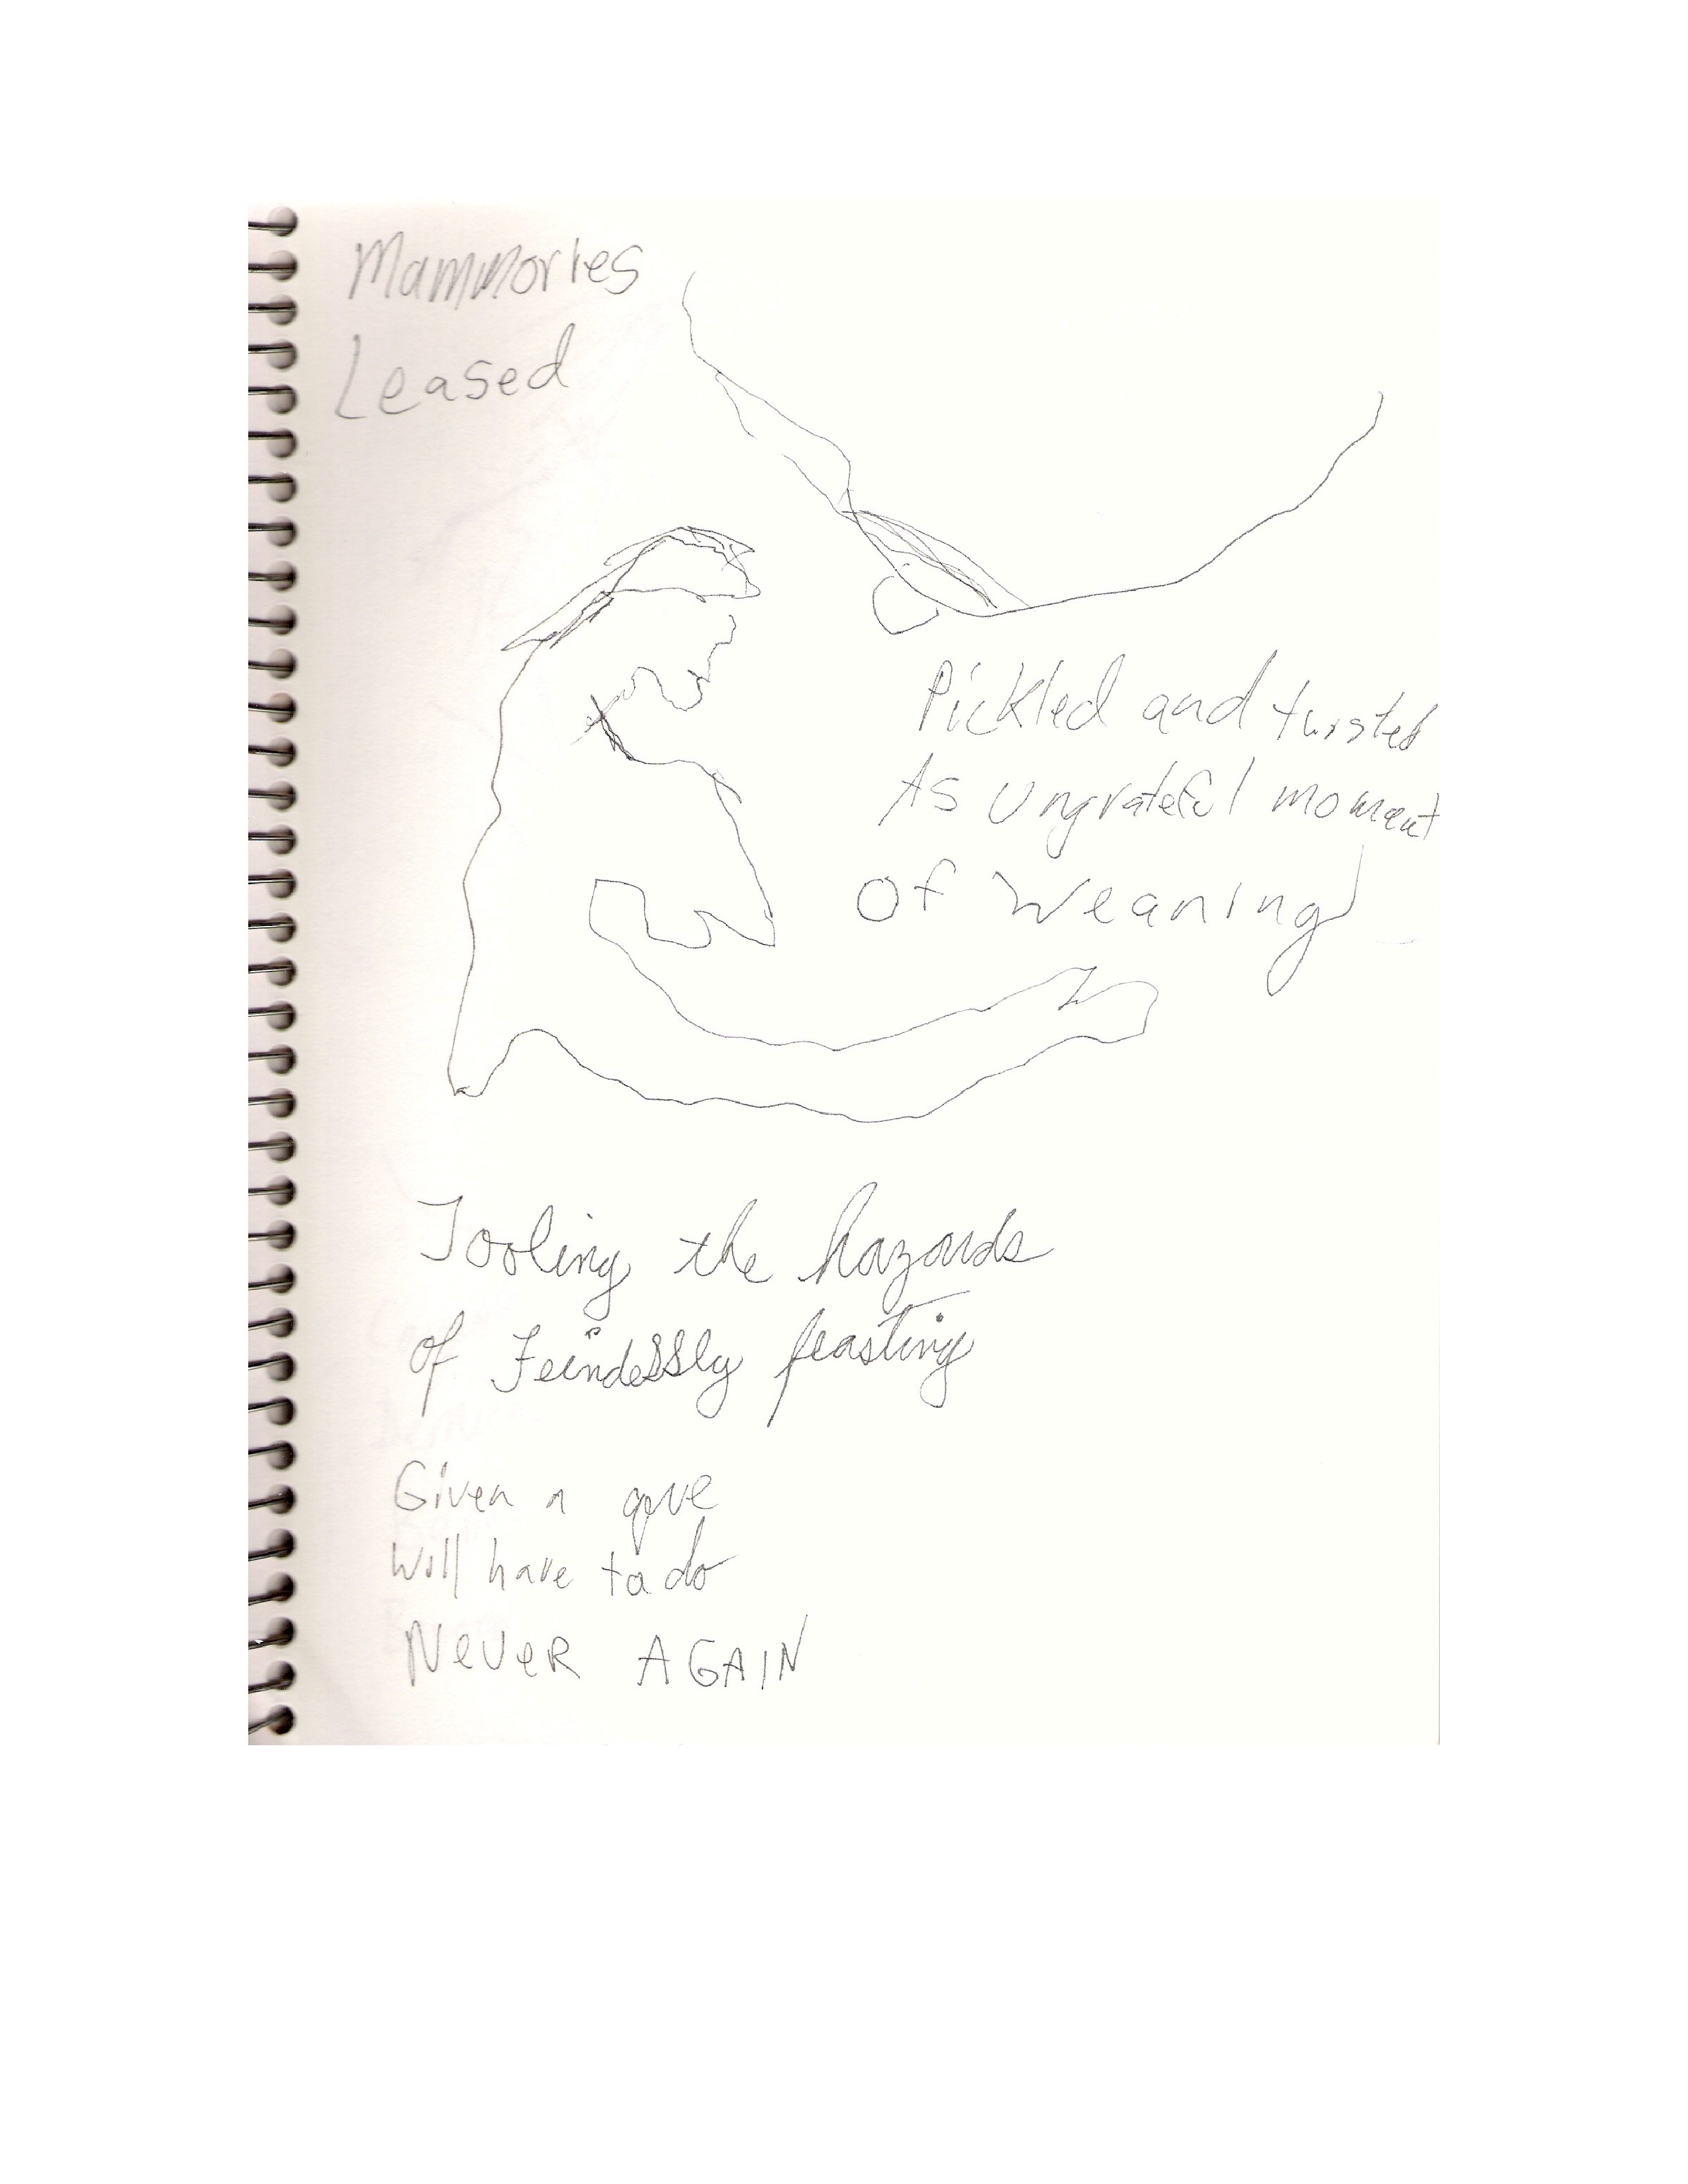 Mammories
Leased
Pickled and twisted
As Ungrateful moment
Of Weaning
Tooling the hazards
of feasting
Given a
Will have to do
NeVeR AGAIN